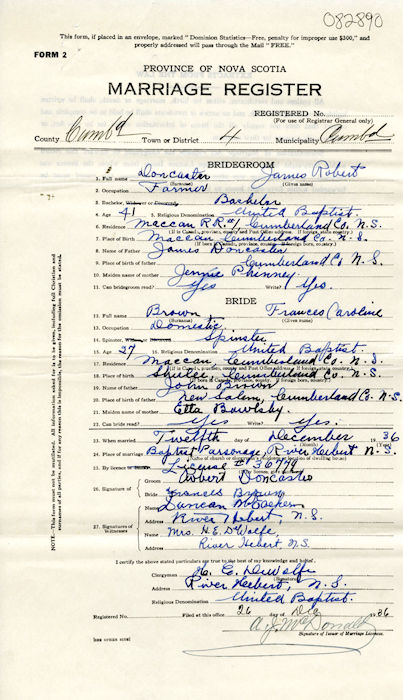 082890
This form, if placed in an envelope, marked "Dominion Statistics—Free, penalty for improper use $300," and
properly addressed will pass through the Mail "FREE."
FORM 2
PROVINCE OF NOVA SCOTIA
MARRIAGE REGISTER
REGISTERED No.
(For use of Registrar General only)
County Cumbd Town or District 4 Municipality Cumbd
BRIDEGROOM
1. Full name Doncaster James Robert
(Surname) (Given name)
2. Occupation Farmer
3. Bachelor, Widower or Divorced Bachelor
4. Age 41 5. Religious Denomination United Baptist.
6. Residence Maccan R.R.#1 Cumberland Co. N.S.
7. Place of Birth Maccan Cumberland Co. N.S.
8. Name of Father James Doncaster
9. Place of birth of father Cumberland Co. N.S.
10. Maiden name of mother Jennie Phinney
11. Can bridegroom read? Yes Write? Yes.
BRIDE
12. Full name Brown, Frances Caroline
(Surname) (Given name)
13. Occupation Domestic,
14. Spinster, Widow or Divorced Spinster
15. Age 27 16. Religious Denomination United Baptist.
17. Residence Maccan, Cumberland Co. N.S.
18. Place of birth Shulie, Cumberland Co. N.S.
19. Name of father John Brown
20. Place of birth of father New Salem, Cumberland Co. N.S.
21. Maiden name of mother Etta Bowlsby.
22. Can bride read? Yes Write? Yes.
23. When married Twelfth day of December 1936
24. Place of marriage Baptist Parsonage, River Hebert N.S.
25. By licence or License #
26. Signature of Groom Robert Doncaster
Bride Frances Brown
27. Signatures of Witnesses Name Duncan
Address River Hebert, N.S.
Name Mrs. H.E. DeWolfe,
Address River Hebert, N.S.
I certify the above stated particulars are true to the best of my knowledge and belief.
Clergyman H. E. DeWolfe
(Signature)
Address River Hebert, N.S.
Religious Denomination United Baptist.
Registered No. Filed at this office 26 day of Dec 1936
A. J. McDonald
Signature of Issuer of Marriage Licenses.
NOTE.—This form must not be mutilated. All information asked for is to be given, including full Christian and
surnames of all parties, and if for any reason this is impossible, the reason for the omission must be stated.